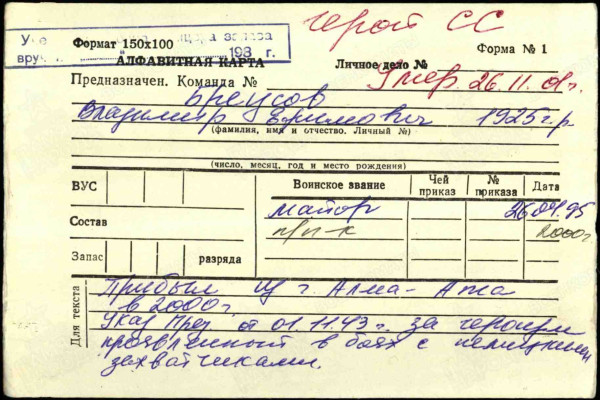 герой СС
Формат 150х100
запаса
198 г.
АЛФАВИТНАЯ КАРТА
Форма № 1
Личное дело №
Предназначен. Команда №
Умер 26.11.01г.
Бреусов
Владимир Ефимович 1925г.р
(фамилия, имя и отчество. Личный №)
(число, месяц, год и место рождения)
ВУС
Воинское звание
Чей приказ
№ приказа
Дата
майор 26.04.95
Состав
п/п-к 2000г
Запас
разряда
Для текста
Прибыл из г. Алма-Ата
в 2000г.
Указ През от 01.11.43г. за героизм
проявленный в боях с немецкими
захватчиками.